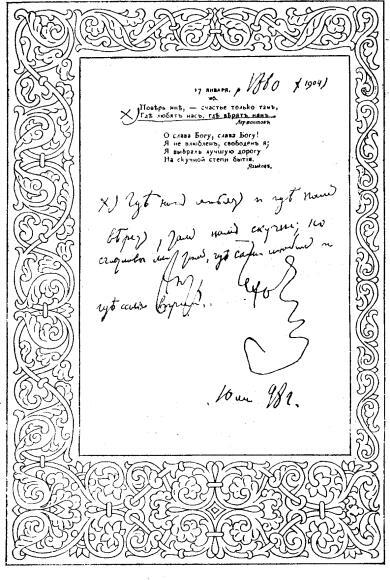 17 ЯНВАРЯ. р. 1860 († 1904)
Х) Повѣрь мнѣ, — счастье только тамъ,
Гдѣ любятъ насъ, гдѣ вѣрятъ намъ.
Лермонтовъ.
О слава Богу, слава Богу!
Я не влюбленъ, свободенъ я;
Я выбралъ лучшую дорогу
На скучной степи бытія.
Языковъ.
Х) Гдѣ нас любят и гдѣ нам
вѣрят, там нам скучно; но
счастливы мы там, гдѣ сами любим и
гдѣ сами вѣрим..
98 г.